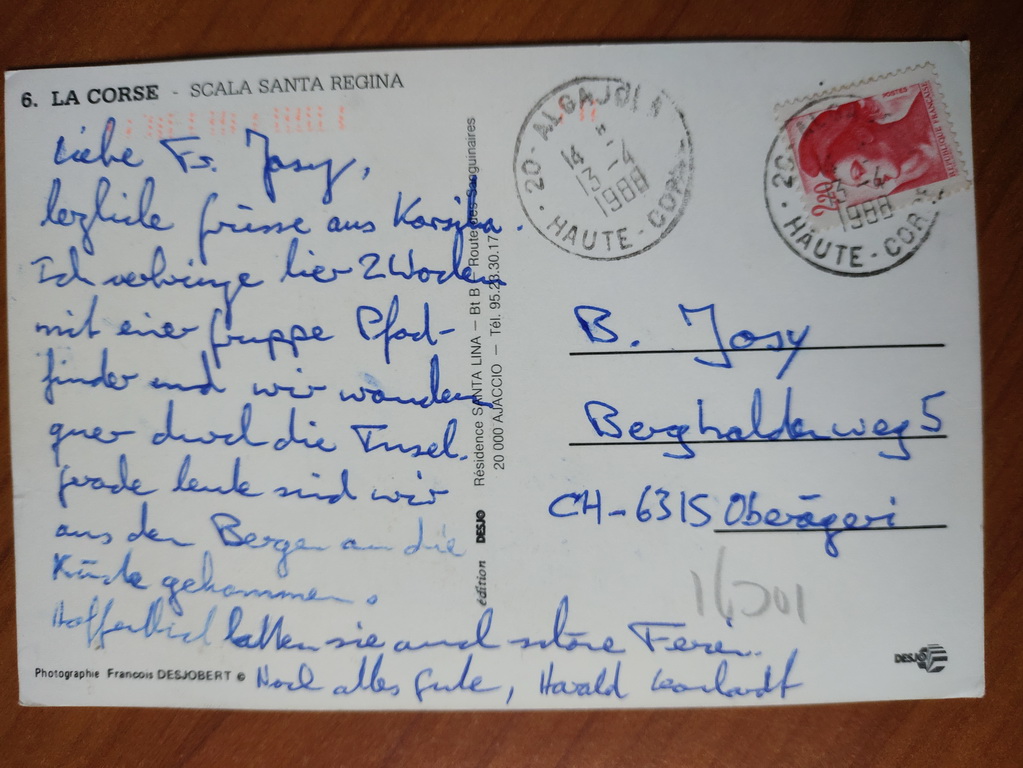 6. LA CORSE - SCALA SANTA REGINA
Liebe Fr. Josy,
herzliche grüsse aus Korsika.
Ich verbringe hier 2 Wochen
mit einer gruppe Pfad-
finder und wir wandern
quer durch die Insel.
grade heute sind wir
aus den Bergen an die
Küste gekommen.
Hoffentlich hatten sie auch schöne Ferien.
Noch alles gute, Harald
Photographie Francois DESJOBERT ©
édition DESJO Résidence SANTA LINA — Bt B — Route des Sanguinaires
20 000 AJACCIO — Tél. 95.23.30.17
20 - ALGAJOLA
14 H
13 - 4
1988
HAUTE - CORSE
POSTES
REPUBLIQUE FRANÇAISE
2,20
20 - ALGAJOLA
13 - 4
1988
HAUTE - CORSE
B. Josy
Berghaldenweg 5
CH-6315 Oberägeri
DESJO